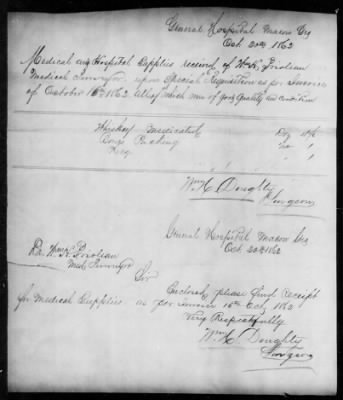 General Hospital Macon Geo
Oct. 20th 1862
Medical and Hospital Supplies received of Wm H. Prioleau
Medical Purveyor upon Special Requisition as per Invoice
of October 16th 1862 all of which were of good quality and condition
Whiskey Medicated
Boxes Packing 1
Keg 1
Wm H. Doughty
Surgeon
General Hospital Macon Geo
Oct. 20th 1862
Dr. Wm H. Prioleau
Med. Purveyor
Sir
Enclosed, please find Receipt
for Medical Supplies as per Invoice 16th Oct, 1862
Very Respectfully
Wm H. Doughty
Surgeon